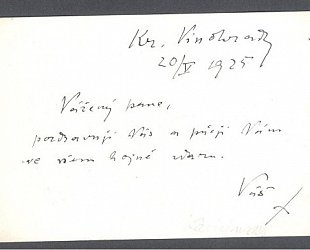 Kr. Vinohrady
20/V 1925
Vážený pane,
pozdravuji Vás a přeji Vám
ve všem hojně zdaru.
Váš